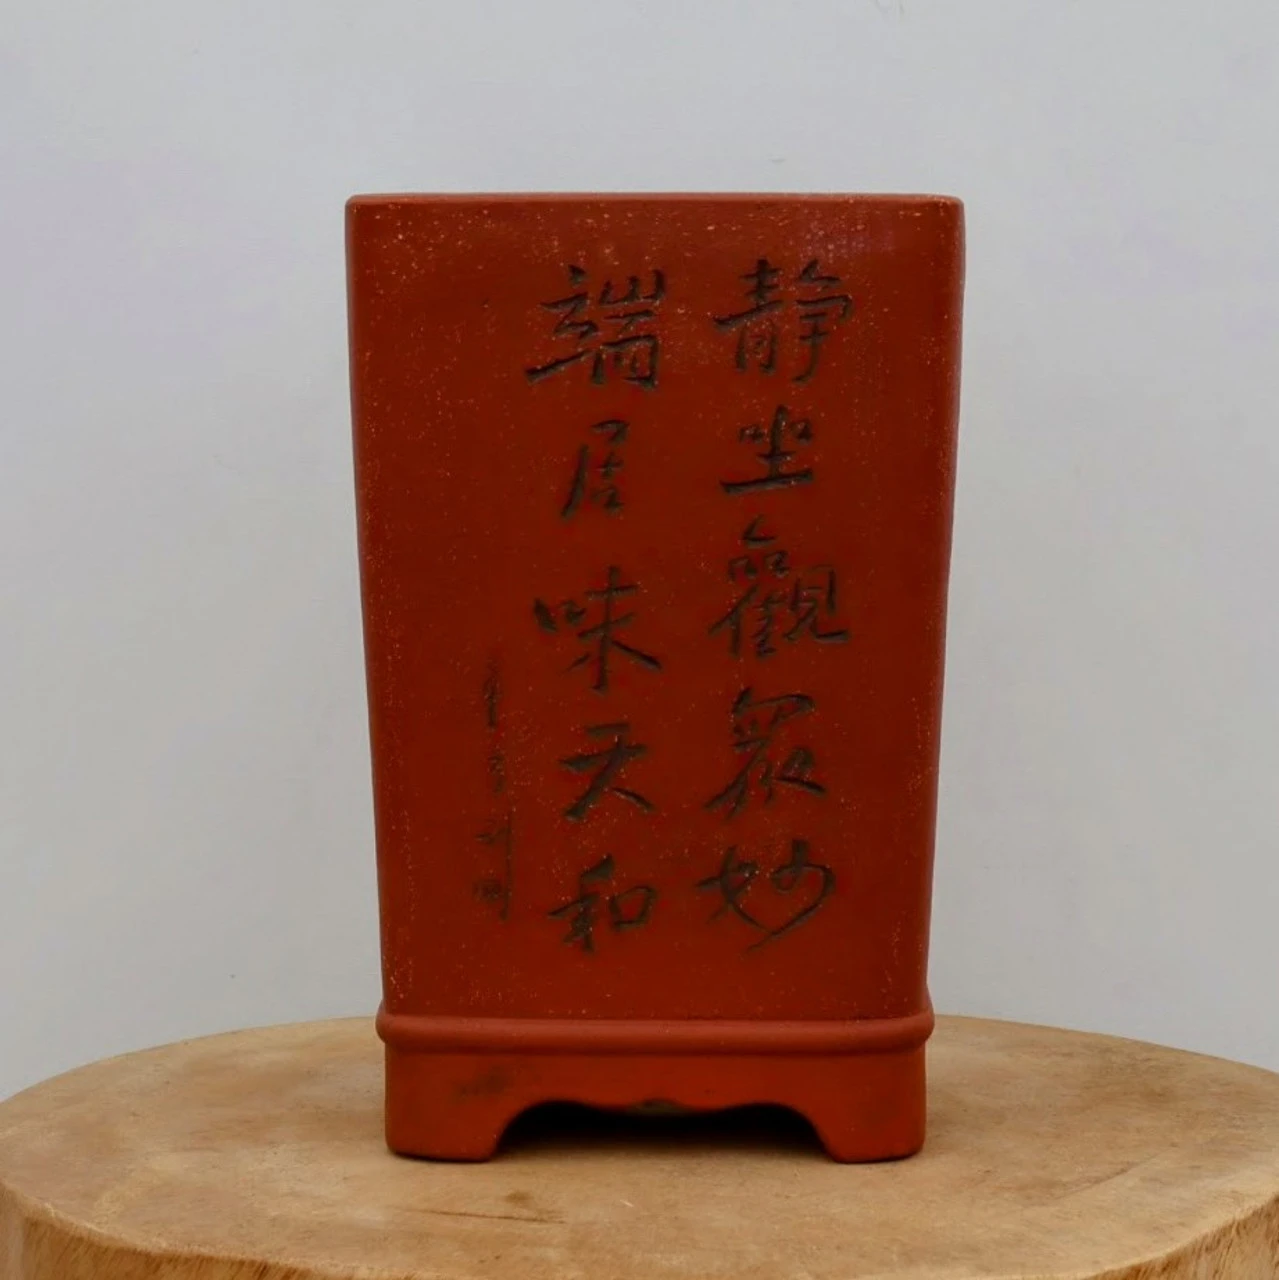 靜坐觀眾妙
端居味天和